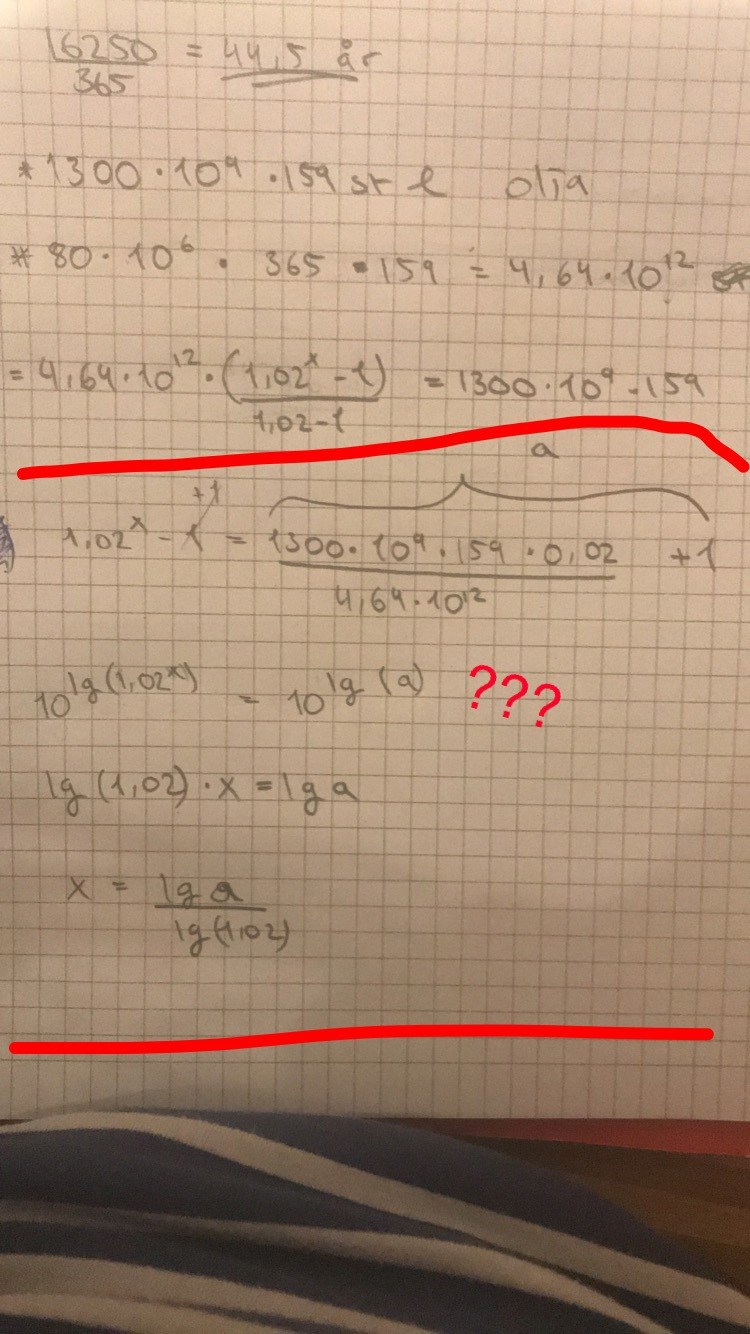 16250/365 = 44,5 år
* 1300 · 10⁹ · 159 st l olja
* 80 · 10⁶ · 365 · 159 = 4,64 · 10¹²
= 4,64 · 10¹² · (1,02ˣ - 1)/1,02-1 = 1300 · 10⁹ · 159
a
+1
1,02ˣ - 1 = 1300 · 10⁹ · 159 · 0,02/4,64 · 10¹² +1
10^lg(1,02ˣ) = 10^lg(a) ???
lg(1,02) · x = lg a
x = lg a/lg(1,02)